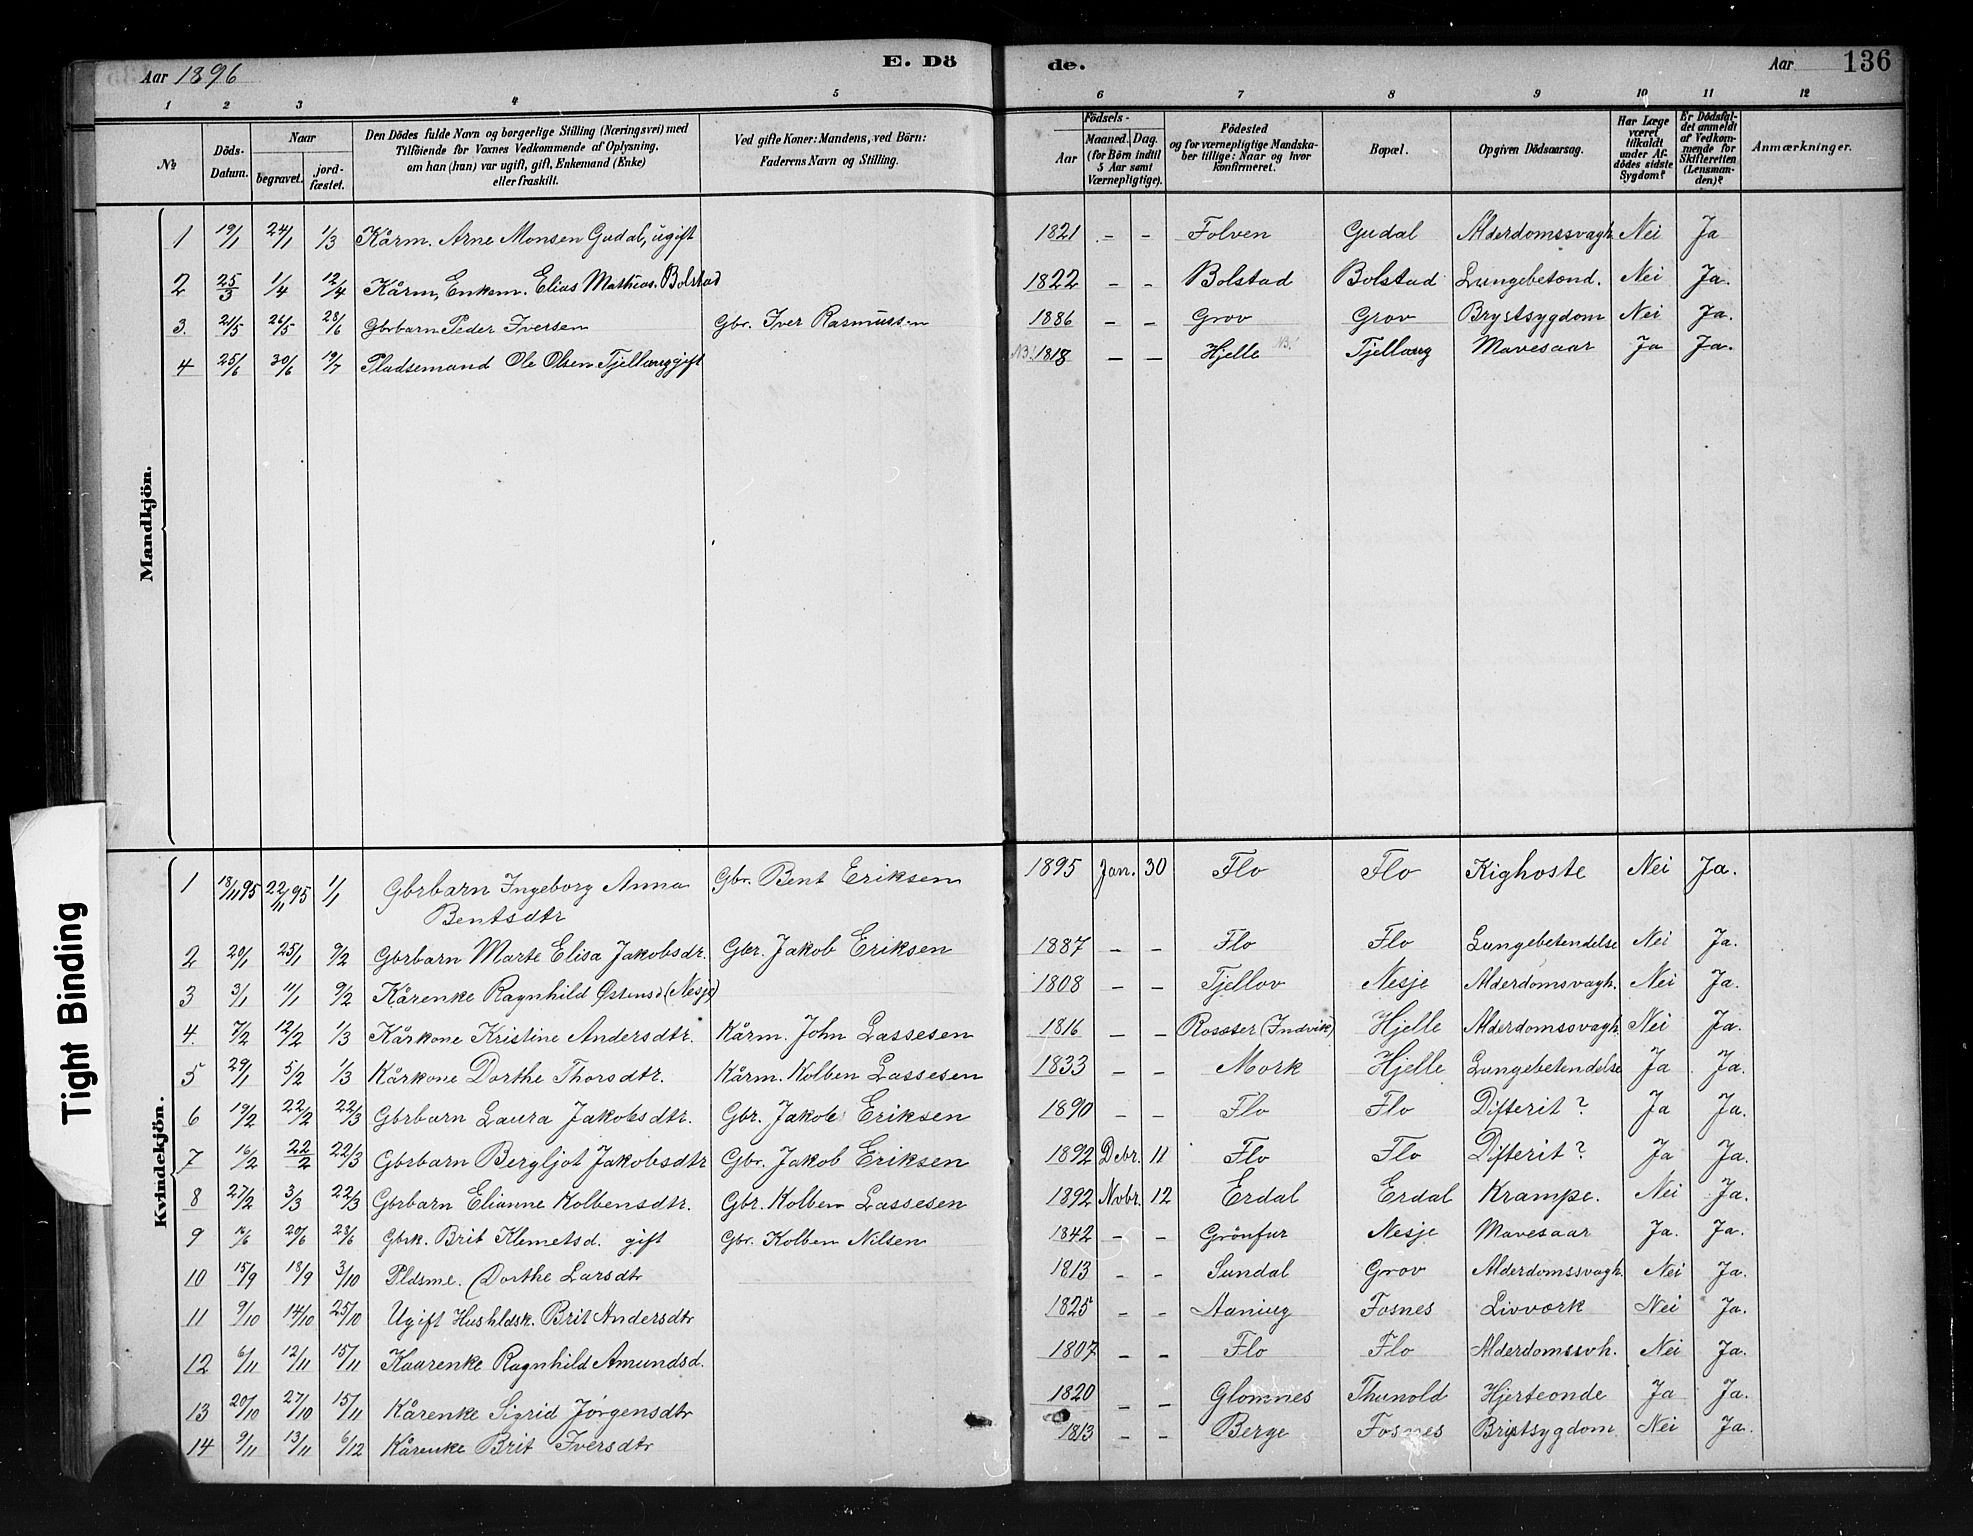 Aar 1896 E. Dö de. Aar 136
1 2 3 4 5 6 7 8 9 10 11 12
№ Döds-Datum. Naar begravet. jord-fæstet. Den Dödes fulde Navn og borgerlige Stilling (Næringsvei) med Tilföiende for Voxnes Vedkommende af Oplysning, om han (hun) var ugift, gift, Enkemand (Enke) eller fraskilt. Ved gifte Koner: Mandens, ved Börn: Faderens Navn og Stilling. Födsels- Aar Maaned. Dag. (for Börn indtil 5 Aar samt Værnepligtige). Födested og for værnepligtige Mandska-ber tillige: Naar og hvor konfirmeret. Bopæl. Opgiven Dödsaarsag. Har Læge været tilkaldt under Af-dödes sidste Sygdom? Er Dödsfal-det anmeldt af Vedkom-mende for Skifteretten (Lensman-den)? Anmærkninger.
Mandkjön.
1 19/1 24/1 1/3 Kårm. Arne Monsen Gudal, ugift 1821 - - Folven Gudal Alderdomssvagh. Nei Ja
2 25/3 1/4 12/4 Kårm, Enkem. Elias Mathias. Bolstad 1822 - - Bolstad Bolstad Lungebetænd. Nei Ja.
3. 21/5 26/5 28/6 Gbrbarn Peder Iversen Gbr. Iver Rasmussen 1886 - - Grov Grov Brystsygdom Nei Ja.
4 25/6 30/6 19/7 Pladsemand Ole Olsen Tjellaug gift NB! 1818 - - Hjelle NB! Tjellaug Mavesaar Ja Ja.
Kvindekjön.
1 18/11 95 22/11 95 1/1 Gbrbarn Ingeborg Anna Gbr. Bent Eriksen 1895 Jan. 30 Flo Flo Kighoste Nei Ja.
Bentsdtr
2 20/1 25/1 9/2 Gbrbarn Marte Elisa Jakobsdtr. Gbr. Jakob Eriksen 1887 - - Flo Flo Lungebetendelse Nei Ja.
3 3/1 11/1 9/2 Kårenke Ragnhild Østensd (Nesje) 1808 - - Tjellov Nesje Alderdomsvagh. Nei Ja.
4. 7/2 12/2 1/3 Kårkone Kristine Andersdtr. Kårm. John Lassesen 1816 - - Roseter (Indvik) Hjelle Alderdomssvagh. Nei Ja.
5 29/1 5/2 1/3 Kårkone Dorthe Thorsdtr. Kårm. Kolben Lassesen 1833 - - Mork Hjelle Lungebetendelse Ja Ja.
6 19/2 22/2 22/3 Gbrbarn Laura Jakobsdtr. Gbr. Jakob Eriksen 1890 - - Flo Flo Difterit? Ja Ja.
7 16/2 22/2 22/3 Gbrbarn Bergljot Jakobsdtr Gbr. Jakob Eriksen 1892 Debr. 11 Flo Flo Difterit? Ja Ja.
8 27/2 3/3 22/3 Gbrbarn Elianne Kolbensdtr. Gbr. Kolben Lassesen 1892 Novbr. 12 Erdal Erdal Krampe. Nei Ja.
9 /6 20/6 28/6 Gbrk. Brit Klemetsd. gift Gbr. Kolben Nilsen 1842 - - Grönfur Nesje Mavesaar Ja. Ja.
10 15/9 18/9 3/10 Pldsme. Dorthe Larsdtr 1813 - - Sundal Grov Alderdomssvagh. Nei Ja.
11 9/10 14/10 25/10 Ugift Hushldsk. Brit Andersdtr 1825 - - Aaning Fosnes Livværk Nei Ja.
12 6/11 12/11 15/11 Kaarenke Ragnhild Amundsd. 1807 - - Flo Flo Alderdomssvh. Nei Ja.
13 20/10 27/10 15/11 Kårenke Sigrid Jørgensdtr 1820 - - Glomnes Thunold Hjerteonde Ja Ja.
14 9/11 13/11 6/12 Kårenke Brit Iversdtr 1813 - - Berge Fosnes Brystsygdom Nei Ja.
Tight Binding